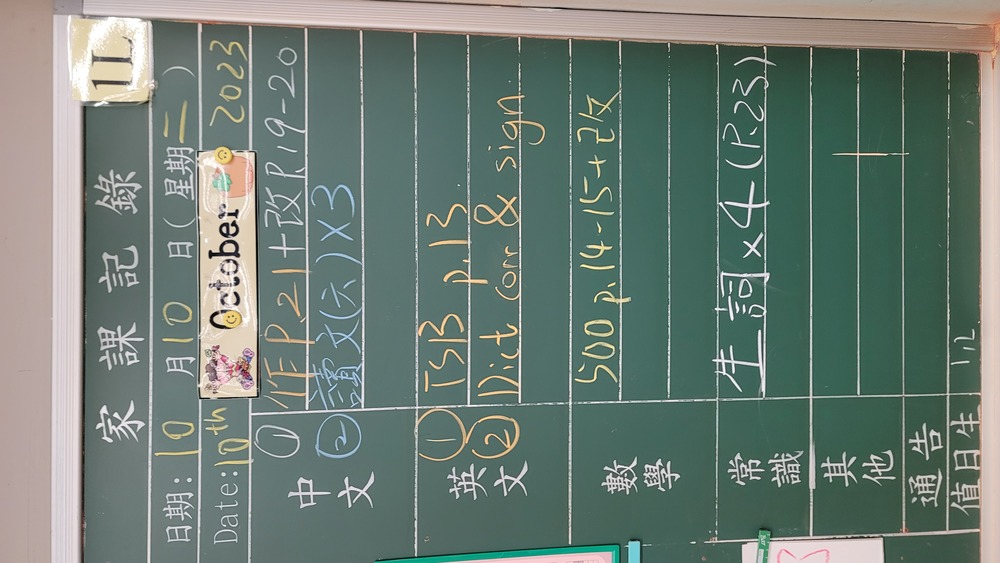 1L
家課記錄
日期: 10 月 10 日(星期二)
Date: 10th October 2023
中文
① 作P.21+改P.19-20
② 讀文(六)×3
英文
① TSB p.13
② Dict corr & sign
數學
500 p.14-15+乙文
常識
生詞×4(P.23)
其他
通告
值日生 1L